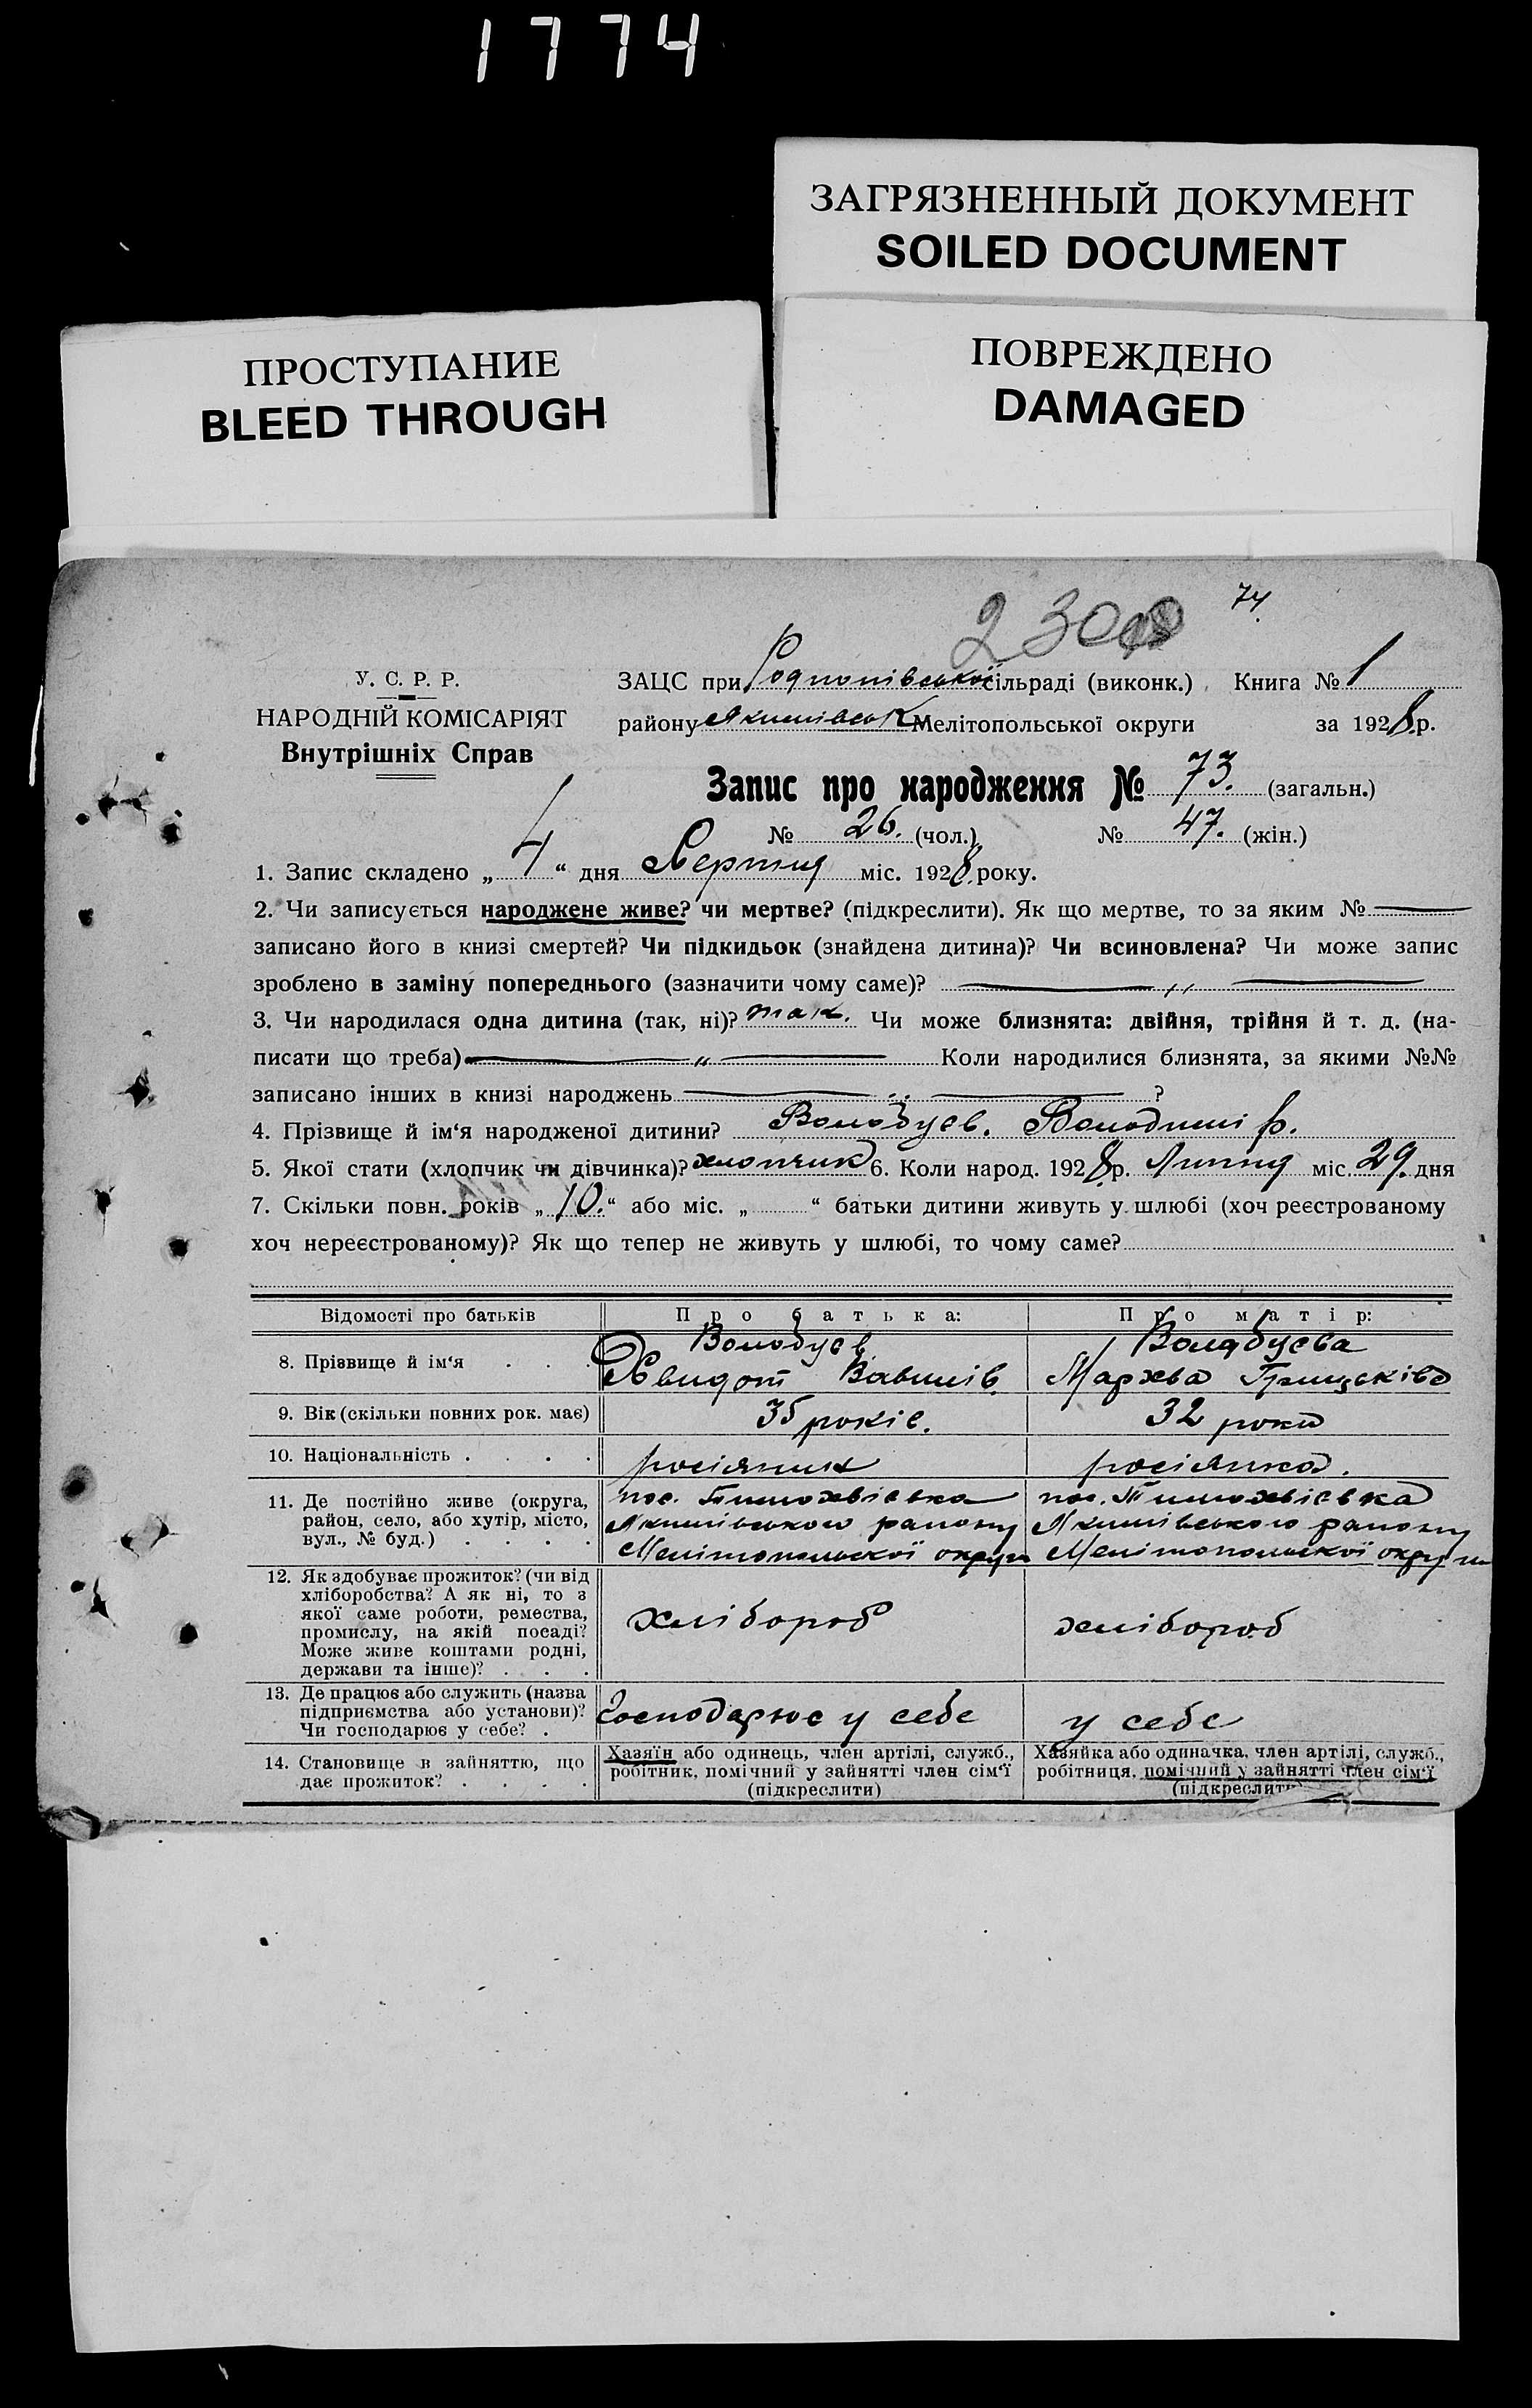 1774
ЗАГРЯЗНЕННЫЙ ДОКУМЕНТ
SOILED DOCUMENT
ПРОСТУПАНИЕ
BLEED THROUGH
ПОВРЕЖДЕНО
DAMAGED
74
У. С. Р. Р.
НАРОДНІЙ КОМІСАРІЯТ
Внутрішніх Справ
ЗАЦС при Родионівській сільраді (виконк.) Книга № 1
району Якимівськ Мелітопольської округи за 1928 р.
Запис про народження № 73. (загальн.)
№ 26. (чол.) № 47. (жін.)
1. Запис складено „ 4 “ дня Серпня міс. 1928 року.
2. Чи записується народжене живе? чи мертве? (підкреслити). Як що мертве, то за яким №
записано його в книзі смертей? Чи підкидьок (знайдена дитина)? Чи всиновлена? Чи може запис
зроблено в заміну попереднього (зазначити чому саме)?
3. Чи народилася одна дитина (так, ні)? так. Чи може близнята: двійня, трійня й т. д. (на-
писати що треба) „ Коли народилися близнята, за якими №№
записано інших в книзі народжень ?
4. Прізвище й ім‘я народженої дитини? Володуєв. Володимі р.
5. Якої стати (хлопчик чи дівчинка)? хлопчик 6. Коли народ. 1928 р. Липня міс. 29. дня
7. Скільки повн. років „ 10. “ або міс. „ “ батьки дитини живуть у шлюбі (хоч реєстрованому
хоч нереєстрованому)? Як що тепер не живуть у шлюбі, то чому саме?
Відомості про батьків Про батька: Про матір:
8. Прізвище й ім‘я . . . Володуєв Волобуєва
Хведот Вавилів. Мархва Грицьківа
9. Вік (скільки повних рок. має) 35 років. 32 роки
10. Національність . . . . росіянин росіянка.
11. Де постійно живе (округа,
район, село, або хутір, місто,
вул., № буд.) . . . .
пос. Тимохвієвка
Якимівського району
Мелітопольскої округи
пос. Тимохвієвка
Якимівського району
Мелітопольскої округи
12. Як здобуває прожиток? (чи від
хліборобства? А як ні, то з
якої саме роботи, ремества,
промислу, на якій посаді?
Може живе коштами родні,
держави та інше)? . . .
хлібороб хлібороб
13. Де працює або служить (назва
підприємства або установи)?
Чи господарює у себе? .
Господарює у себе у себе
14. Становище в зайняттю, що
дає прожиток? . . . .
Хазяїн або одинець, член артілі, служб.,
робітник, помічний у зайнятті член сім‘ї
(підкреслити)
Хазяйка або одиначка, член артілі, служб.,
робітниця, помічний у зайнятті член сім‘ї
(підкреслити)